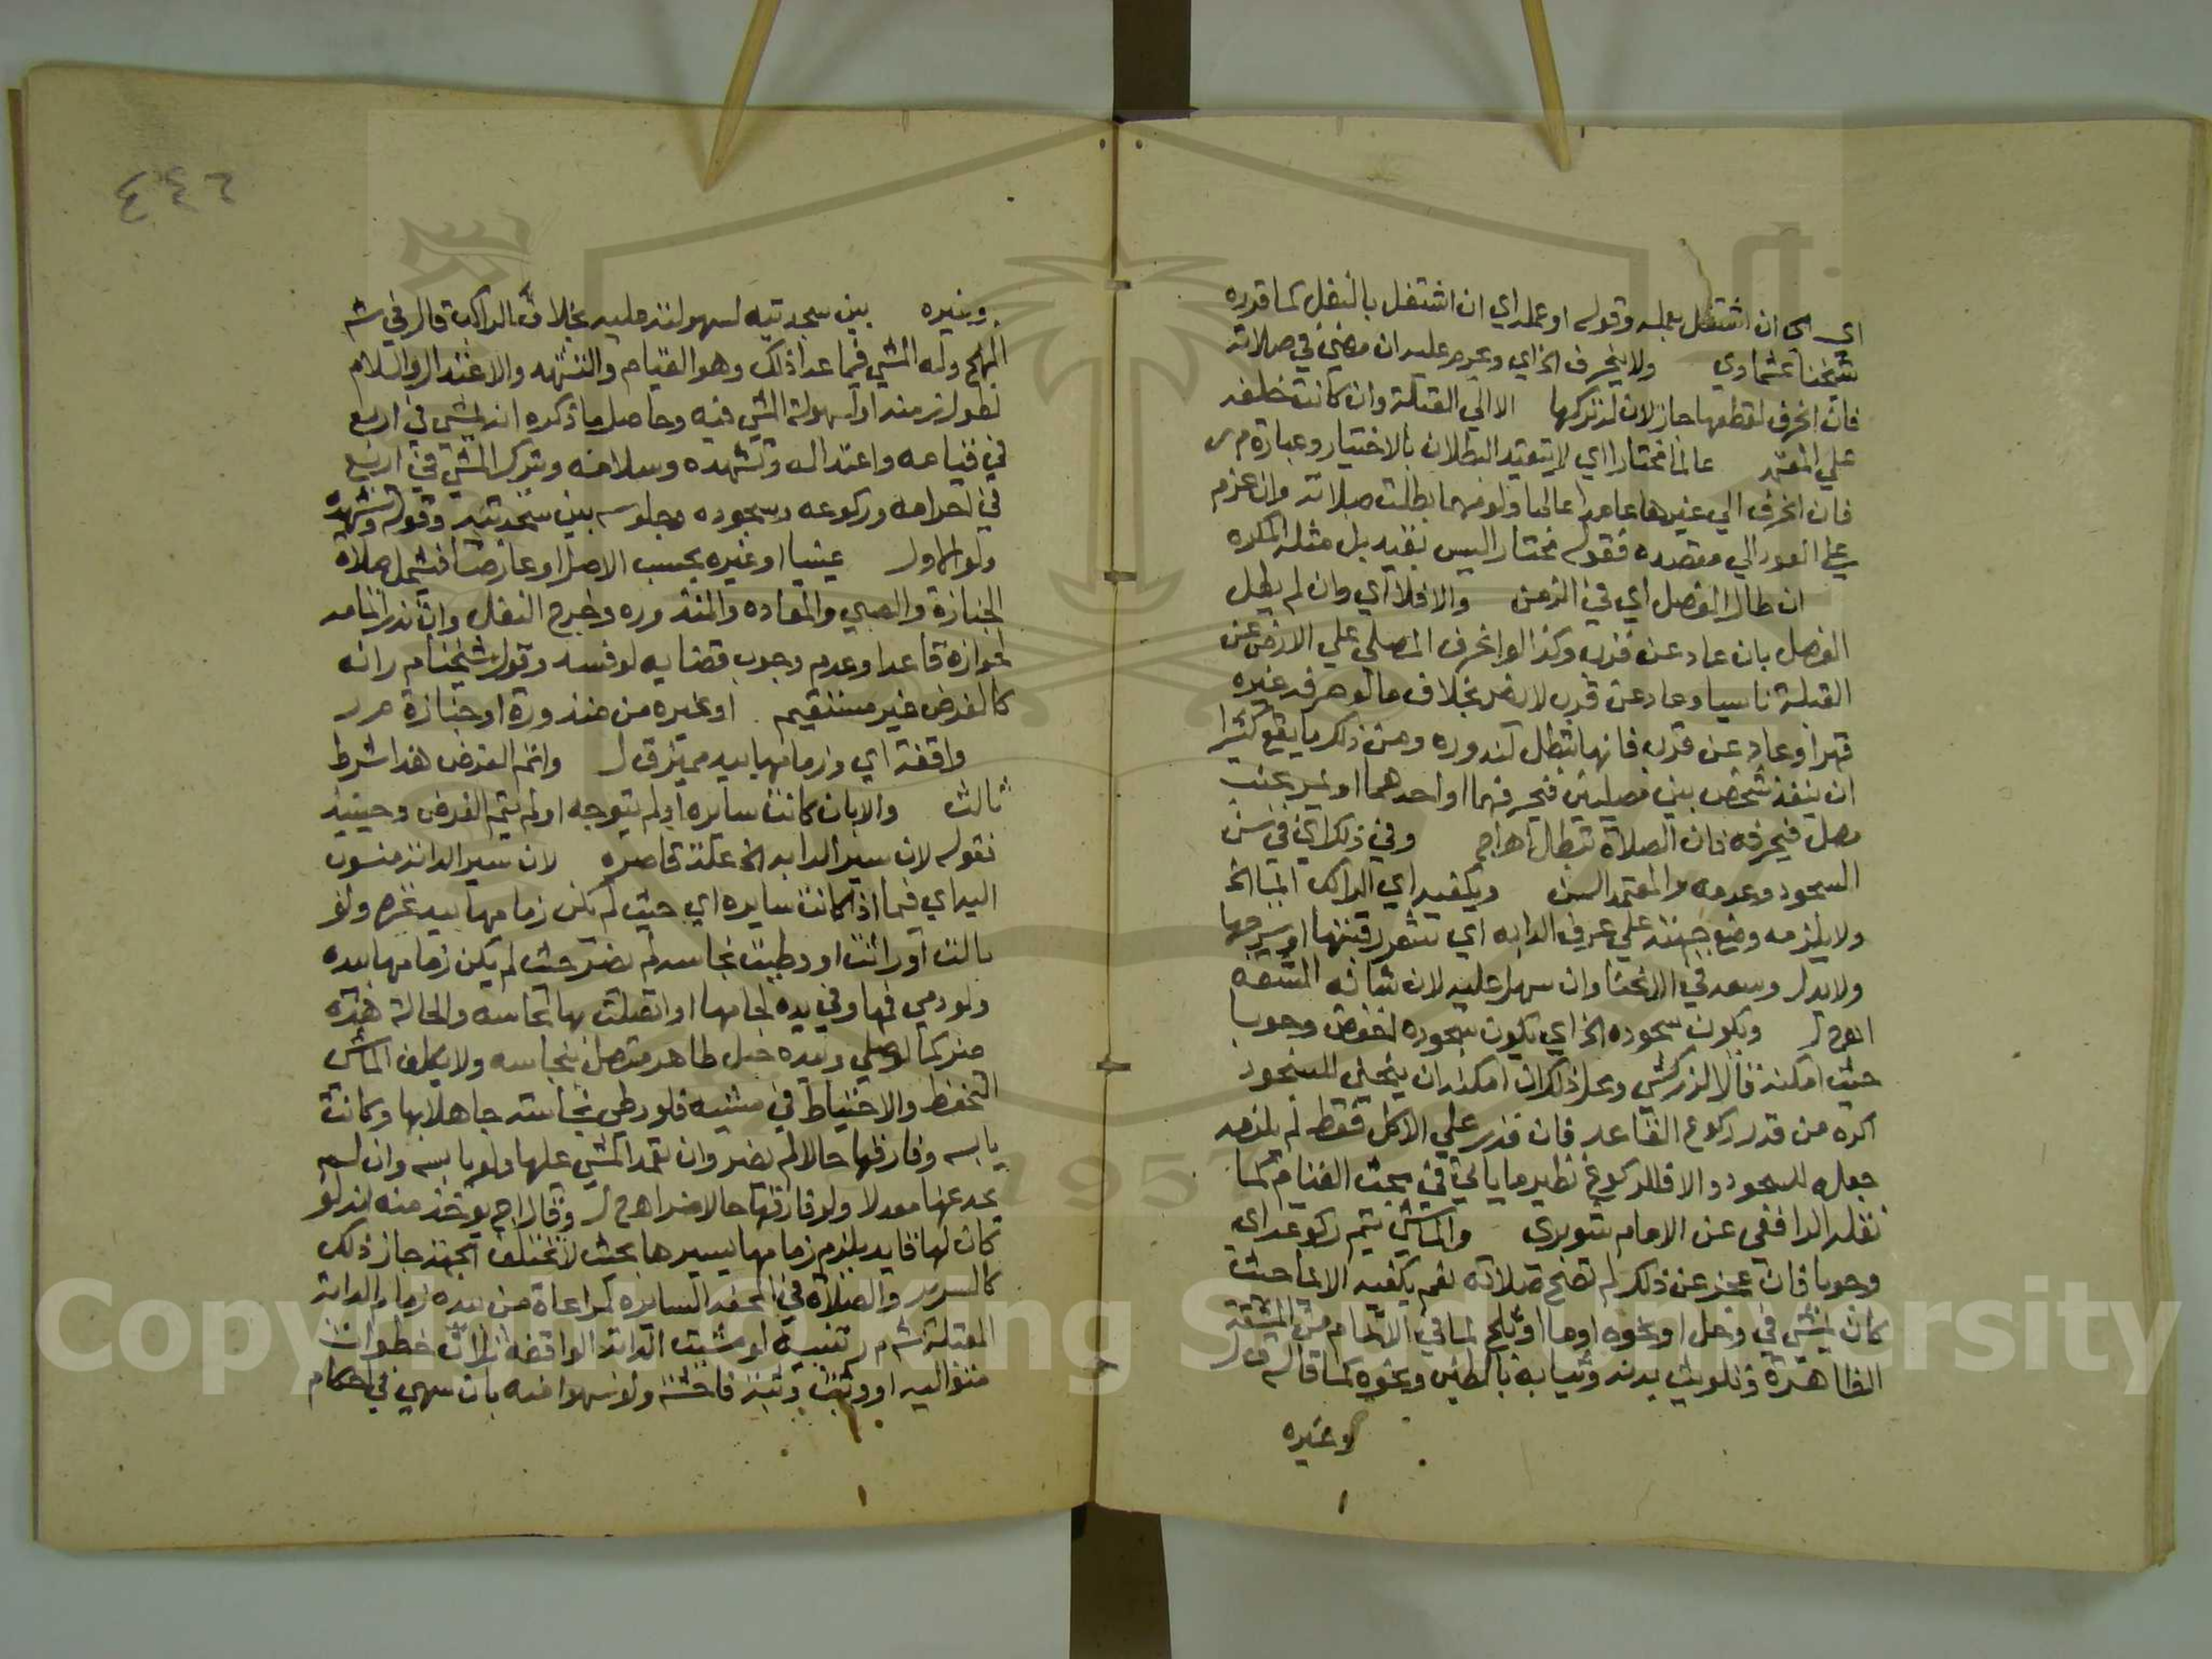 اي ان اشتغل بعمله وقوله او عمله اي ان اشتغل بالنفل كما قدره
شيخنا عشماوي ولا ينحرف الخ اي وعرم عليه ان مضى في صلاته
فان انحرف لقطعها جاز لان له تركها الا الي القبلة وان كانت خلفه
علي المعتمد عالما مختارا اي لا يتقيد البطلان بالاختيار وعبارة م ر
فان انحرف الي غيرها عامدا عالما ولو قهرا بطلت صلاته وان عزم
علي العود الي مقصده فقوله مختارا ليس بقيد بل مثله المكره
ان طال الفصل اي في الزمن والا فلا اي وان لم يطل
الفصل بان عاد عن قرب وكذا لو انحرف المصلي علي الارض عن
القبلة ناسيا وعاد عن قرب لا يضر بخلاف ما لو حرفه غيره
قهرا وعاد عن قرب فانها تبطل لندوره ومن ذلك ما يقع كثيرا
ان ينفذ شخص بين مصليين فيحرفهما او احدهما او يمر بجنب
مصل فيحرفه فان الصلاة تبطل اهـ اج وفي ذلك اي في سن
السجود وعدمه والمعتمد السن ويكفيه اي الراكب ايما الخ
ولا يلزمه وضع جبهته علي عرف الدابه اي شعر رقبتها او سرجها
ولا بذل وسعه في الانحنا وان سهل عليه لان شانه المشقه
اهـ م ر ويكون سجوده الخ اي يكون سجوده اخفض وجوبا
حيث امكنه قال الزركشي ومحل ذلك ان امكنه ان ينحني للسجود
اكثر من قدر ركوع القاعد فان قدر علي الاكمل فقط لم يلزمه
جعله للسجود والاقل للركوع نظير ما ياتي في بحث القيام كما
نقله الرافعي عن الامام شوبري والماشي يتم ركوعه اي
وجوبا فان عجز عن ذلك لم تصح صلاته نعم يكفيه الايما حيث
كان يمشي في وحل او نحوه او ما او ثلج لما في الاتمام من المشقة
الظاهرة وتلويث بدنه وثيابه بالطين ونحوه كما قاله ق ل
وغيره
٢٤٤
وغيره بين سجدتيه لسهولته عليه بخلاف الراكب قال في شـ
المنهج وله المشي فيما عدا ذلك وهو القيام والتشهد والاعتدال والسلام
لطول زمنه او لسهولة المشي فيه وحاصل ما ذكره انه يمشي في اربع
في قيامه واعتداله وتشهده وسلامه ويترك المشي في اربع
في احرامه وركوعه وسجوده وجلوسه بين سجدتيه وقوله وتشهده
ولو الاول عينيا او غيره بحسب الاصل او عارضا فشمل صلاة
الجنازة والصبي والمعاده والمنذوره وخرج النفل وان نذر اتمامه
لجوازه قاعدا وعدم وجوب قضايه لو فسد وقول شيخنا م ر انه
كالفرض غير مستقيم او غيره من منذورة او جنازة م ر
واقفة اي وزمامها بيد مميز ق ل واتم الفرض هذا شرط
ثالث والا بان كانت سايره او لم يتوجه او لم يتم الفرض وحينيذ
فقوله لان سير الدابه الخ علة قاصره لان سير الدابة منسوب
اليه اي فيما اذا كانت سايره اي حيث لم يكن زمامها بيد غيره ولو
بالت او راثت او وطيت نجاسه لم يضر حيث لم يكن زمامها بيده
ولو دمي فمها وفي يده لجامها او اتصلت بها نجاسه والحالة هذه
ضر كما لو صلي وبيده حبل طاهر متصل بنجاسه ولا يكلف الماشي
التحفظ والاحتياط في مشيه فلو وطي نجاسه جاهلا بها وكانت
يابسه وفارقها حالا لم يضر وان تعمد المشي عليها ولو يابسه وان لم
يجد عنها معدلا ولو فارقها حالا ضر اهـ م ر وقال اج يوخذ منه انه لو
كان لها قايد يلزم زمامها يسيرها بحيث لا تختلف الجهة جاز ذلك
كالسرير والصلاة في المحفه السايره لمراعاة من بيده زمام الدابة
القبلة شـ م ر تنبيه لو مشت الدابه الواقفه ثلاث خطوات
متواليه او وثبت وثبة فاحشه ولو سهوا منه بان سهي في احكام